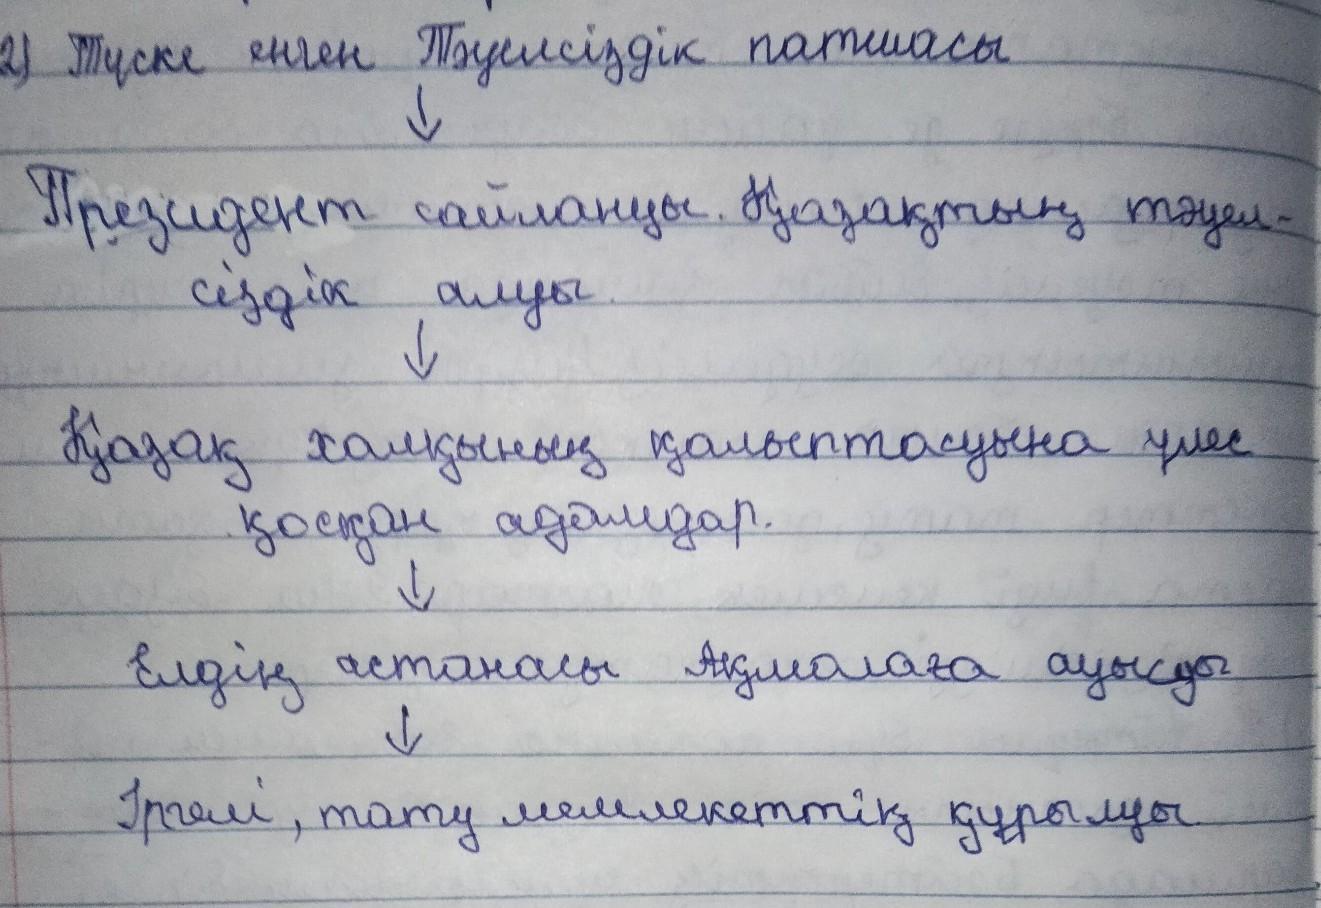 2) Түске енген Тәуелсіздік патшасы
↓
Президент сайлануы. Қазақтың тәуел-
сіздік алуы.
↓
Қазақ халқының қалыптасуына үлес
қосқан адамдар.
↓
Елдің астанасы Ақмолаға ауысуы
↓
Іргелі, тату мемлекеттің құрылуы